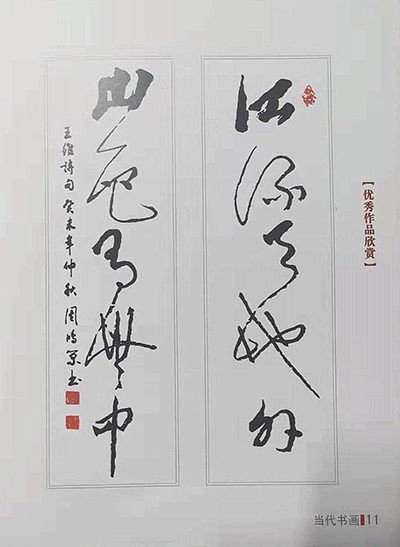 江流天地外
山色有无中
王维诗句癸未年仲秋周鸿景书
【优秀作品欣赏】
当代书画 11